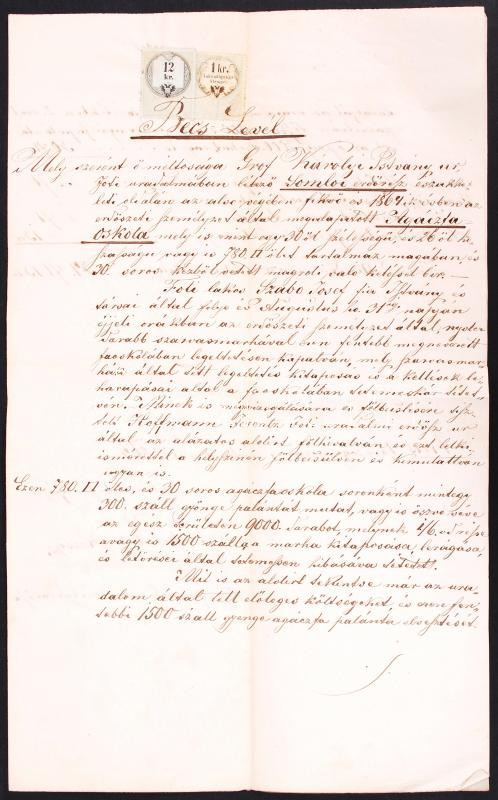 12 kr.
1 kr.
Becs-Level
Mely szerint ő méltosága Grof Károlyi Istvány ur
Foti uradalmában létező Somloi erdőrész északke
leti oldalán az alsó végében fekvő és 1867. ik évben az
erdőszeti személyzet által megalapitott Agáczfa
oskola, mely is mint egy 30 öl szélességű, és 26 öl ho
szaságu vagy is 780. II ölet tartalmaz magában és
30. soros kézből vetett magrol valo keléssel bir. —
Foti lakos Szabo Josef fia Istvány és
társai által folyo év Augustus ho 31én napján
éjjeli orákban az erdőszeti személyzet által, nyolcz
darab szarvasmarhával ezen fentebb megnevezett
faoskolában legeltetésen kapatván, mely szarvasmar
hák által tett legeltetés kitaposás is a kellések le
harapásai által a faoskolában tetemes kár tétet
vén. Minek is megvizsgálására és fölbecslésére tisz
telt Hoffmann Ferentz Foti uradalmi erdősz ur
által az alázatos alolirt fölhivatván és ezt lelki
isméretel a helyszinén fölbecsülvén és kimutattván
ugyan is.
Ezen 780. II öles, és 30 soros agaczfaoskola sorenként mintegy
300. száll gyönge palántát mutat, vagy is öszve véve
az egész területen 9000 darabot, melynek 1/6. od része
avagy is 1500 szállja marha kitaposása, leragása,
és letörései által tetemessen hibásává tétetett.
Mit is az alolirt tekintve már az ura
dalom által tett előleges költségeket, és ezen fen
tebbi 1500 száll gyenge agaczfa palánta elvesztését